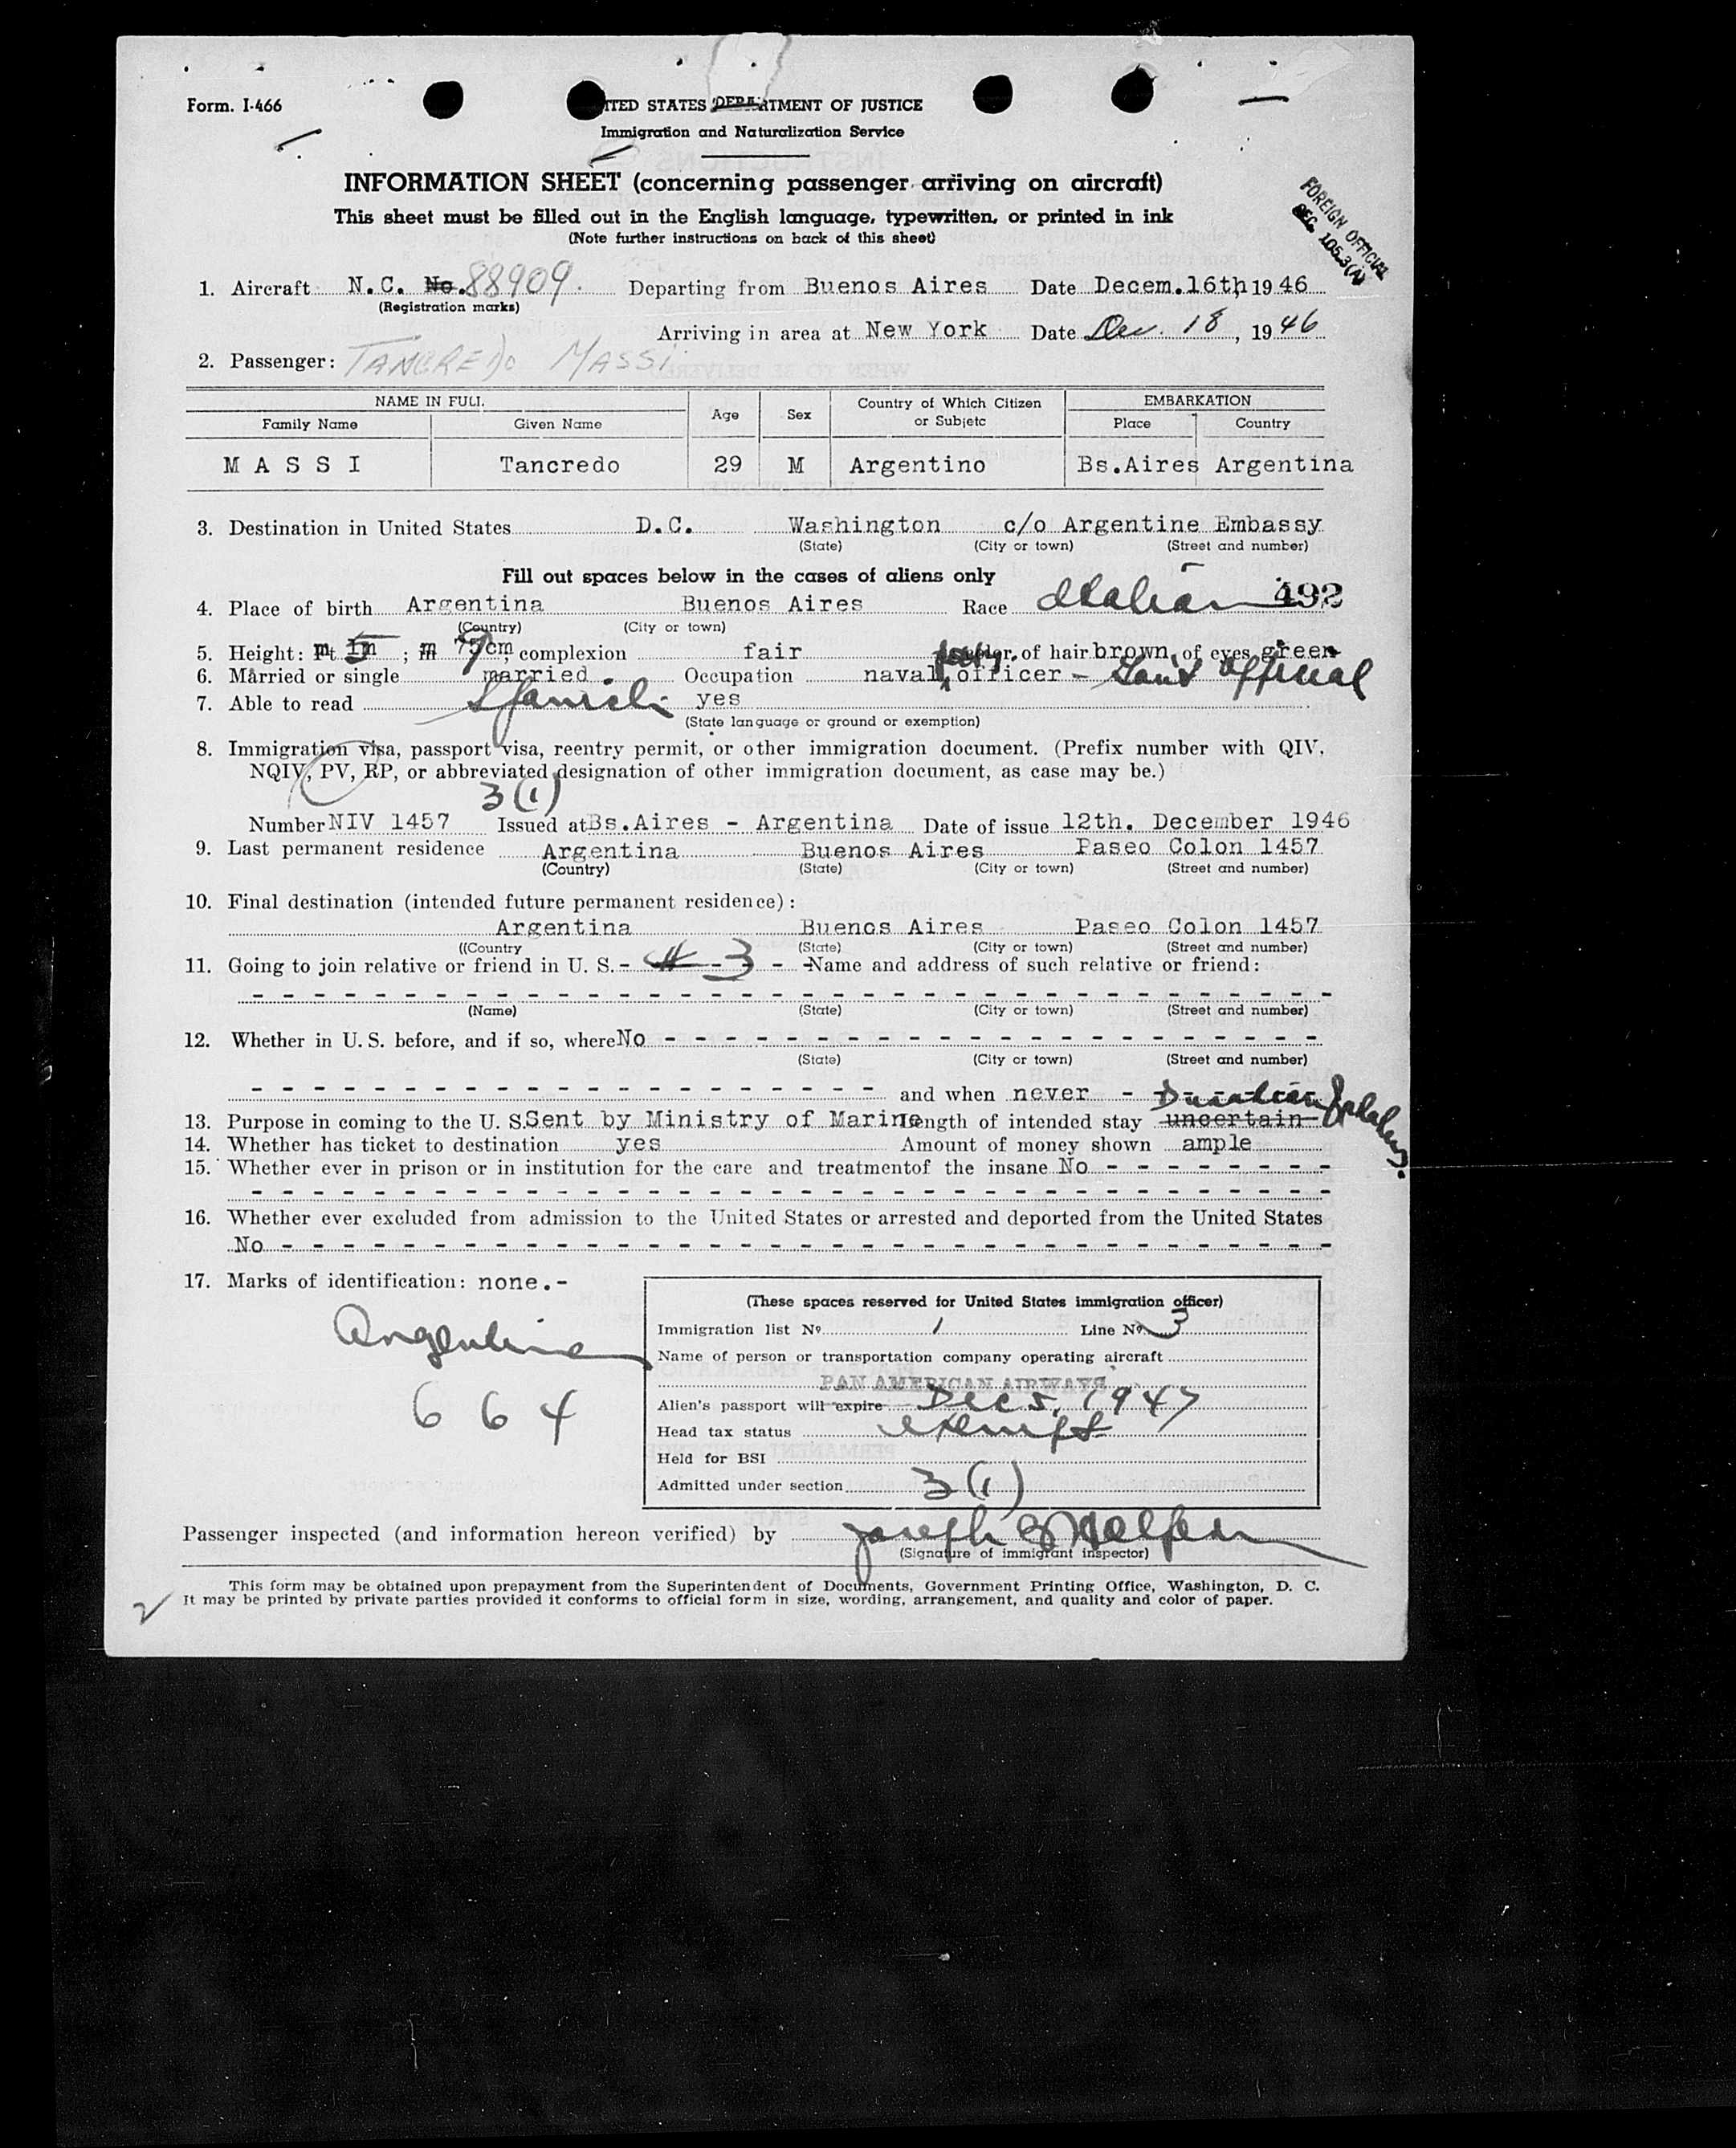 Form. I-466
ITED STATES DEPARTMENT OF JUSTICE
Immigration and Naturalization Service
INFORMATION SHEET (concerning passenger arriving on aircraft)
This sheet must be filled out in the English language, typewritten, or printed in ink
(Note further instructions on back of this sheet)
FOREIGN OFFICIAL
SEC. 105.3(A)
1. Aircraft N.C. No. 88909. Departing from Buenos Aires Date Decem.16th, 1946
(Registration marks)
Arriving in area at New York Date Dec. 18, 1946
2. Passenger: TANCREDO MASSI
NAME IN FULL Age Sex Country of Which Citizen or Subjetc EMBARKATION
Family Name Given Name Place Country
MASSI Tancredo 29 M Argentino Bs.Aires Argentina
3. Destination in United States D.C. Washington c/o Argentine Embassy
(State) (City or town) (Street and number)
Fill out spaces below in the cases of aliens only
4. Place of birth Argentina Buenos Aires Race Italian 492
(Country) (City or town)
5. Height: 5 ; 9 complexion fair of hair brown, of eyes green
6. Married or single married. Occupation naval officer - Gov't Official
7. Able to read Spanish yes
(State language or ground or exemption)
8. Immigration visa, passport visa, reentry permit, or other immigration document. (Prefix number with QIV,
NQIV, PV, RP, or abbreviated designation of other immigration document, as case may be.)
3(1)
Number NIV 1457 Issued at Bs.Aires - Argentina Date of issue 12th. December 1946
9. Last permanent residence Argentina Buenos Aires Paseo Colon 1457
(Country) (State) (City or town) (Street and number)
10. Final destination (intended future permanent residence):
Argentina Buenos Aires Paseo Colon 1457
((Country (State) (City or town) (Street and number)
11. Going to join relative or friend in U. S. - 3 - - Name and address of such relative or friend:
(Name) (State) (City or town) (Street and number)
12. Whether in U. S. before, and if so, where No - - - - - - - - - - - - - - - - - - - - - -
(State) (City or town) (Street and number)
and when never - Duration of
13. Purpose in coming to the U. S. Sent by Ministry of Marine Length of intended stay uncertain
14. Whether has ticket to destination yes Amount of money shown ample
15. Whether ever in prison or in institution for the care and treatmentof the insane No - - - - - - - -
16. Whether ever excluded from admission to the United States or arrested and deported from the United States
No - - - - - - - - - - - - - - - - - - - - - - - - - - - - - - - - - -
17. Marks of identification: none.-
Argentine
664
(These spaces reserved for United States immigration officer)
Immigration list Nº 1 Line Nº 3
Name of person or transportation company operating aircraft
PAN AMERICAN AIRWAYS
Alien's passport will expire Dec 5, 1947
Head tax status exempt
Held for BSI
Admitted under section 3(1)
Passenger inspected (and information hereon verified) by Joseph
(Signature of immigrant inspector)
This form may be obtained upon prepayment from the Superintendent of Documents, Government Printing Office, Washington, D. C.
It may be printed by private parties provided it conforms to official form in size, wording, arrangement, and quality and color of paper.